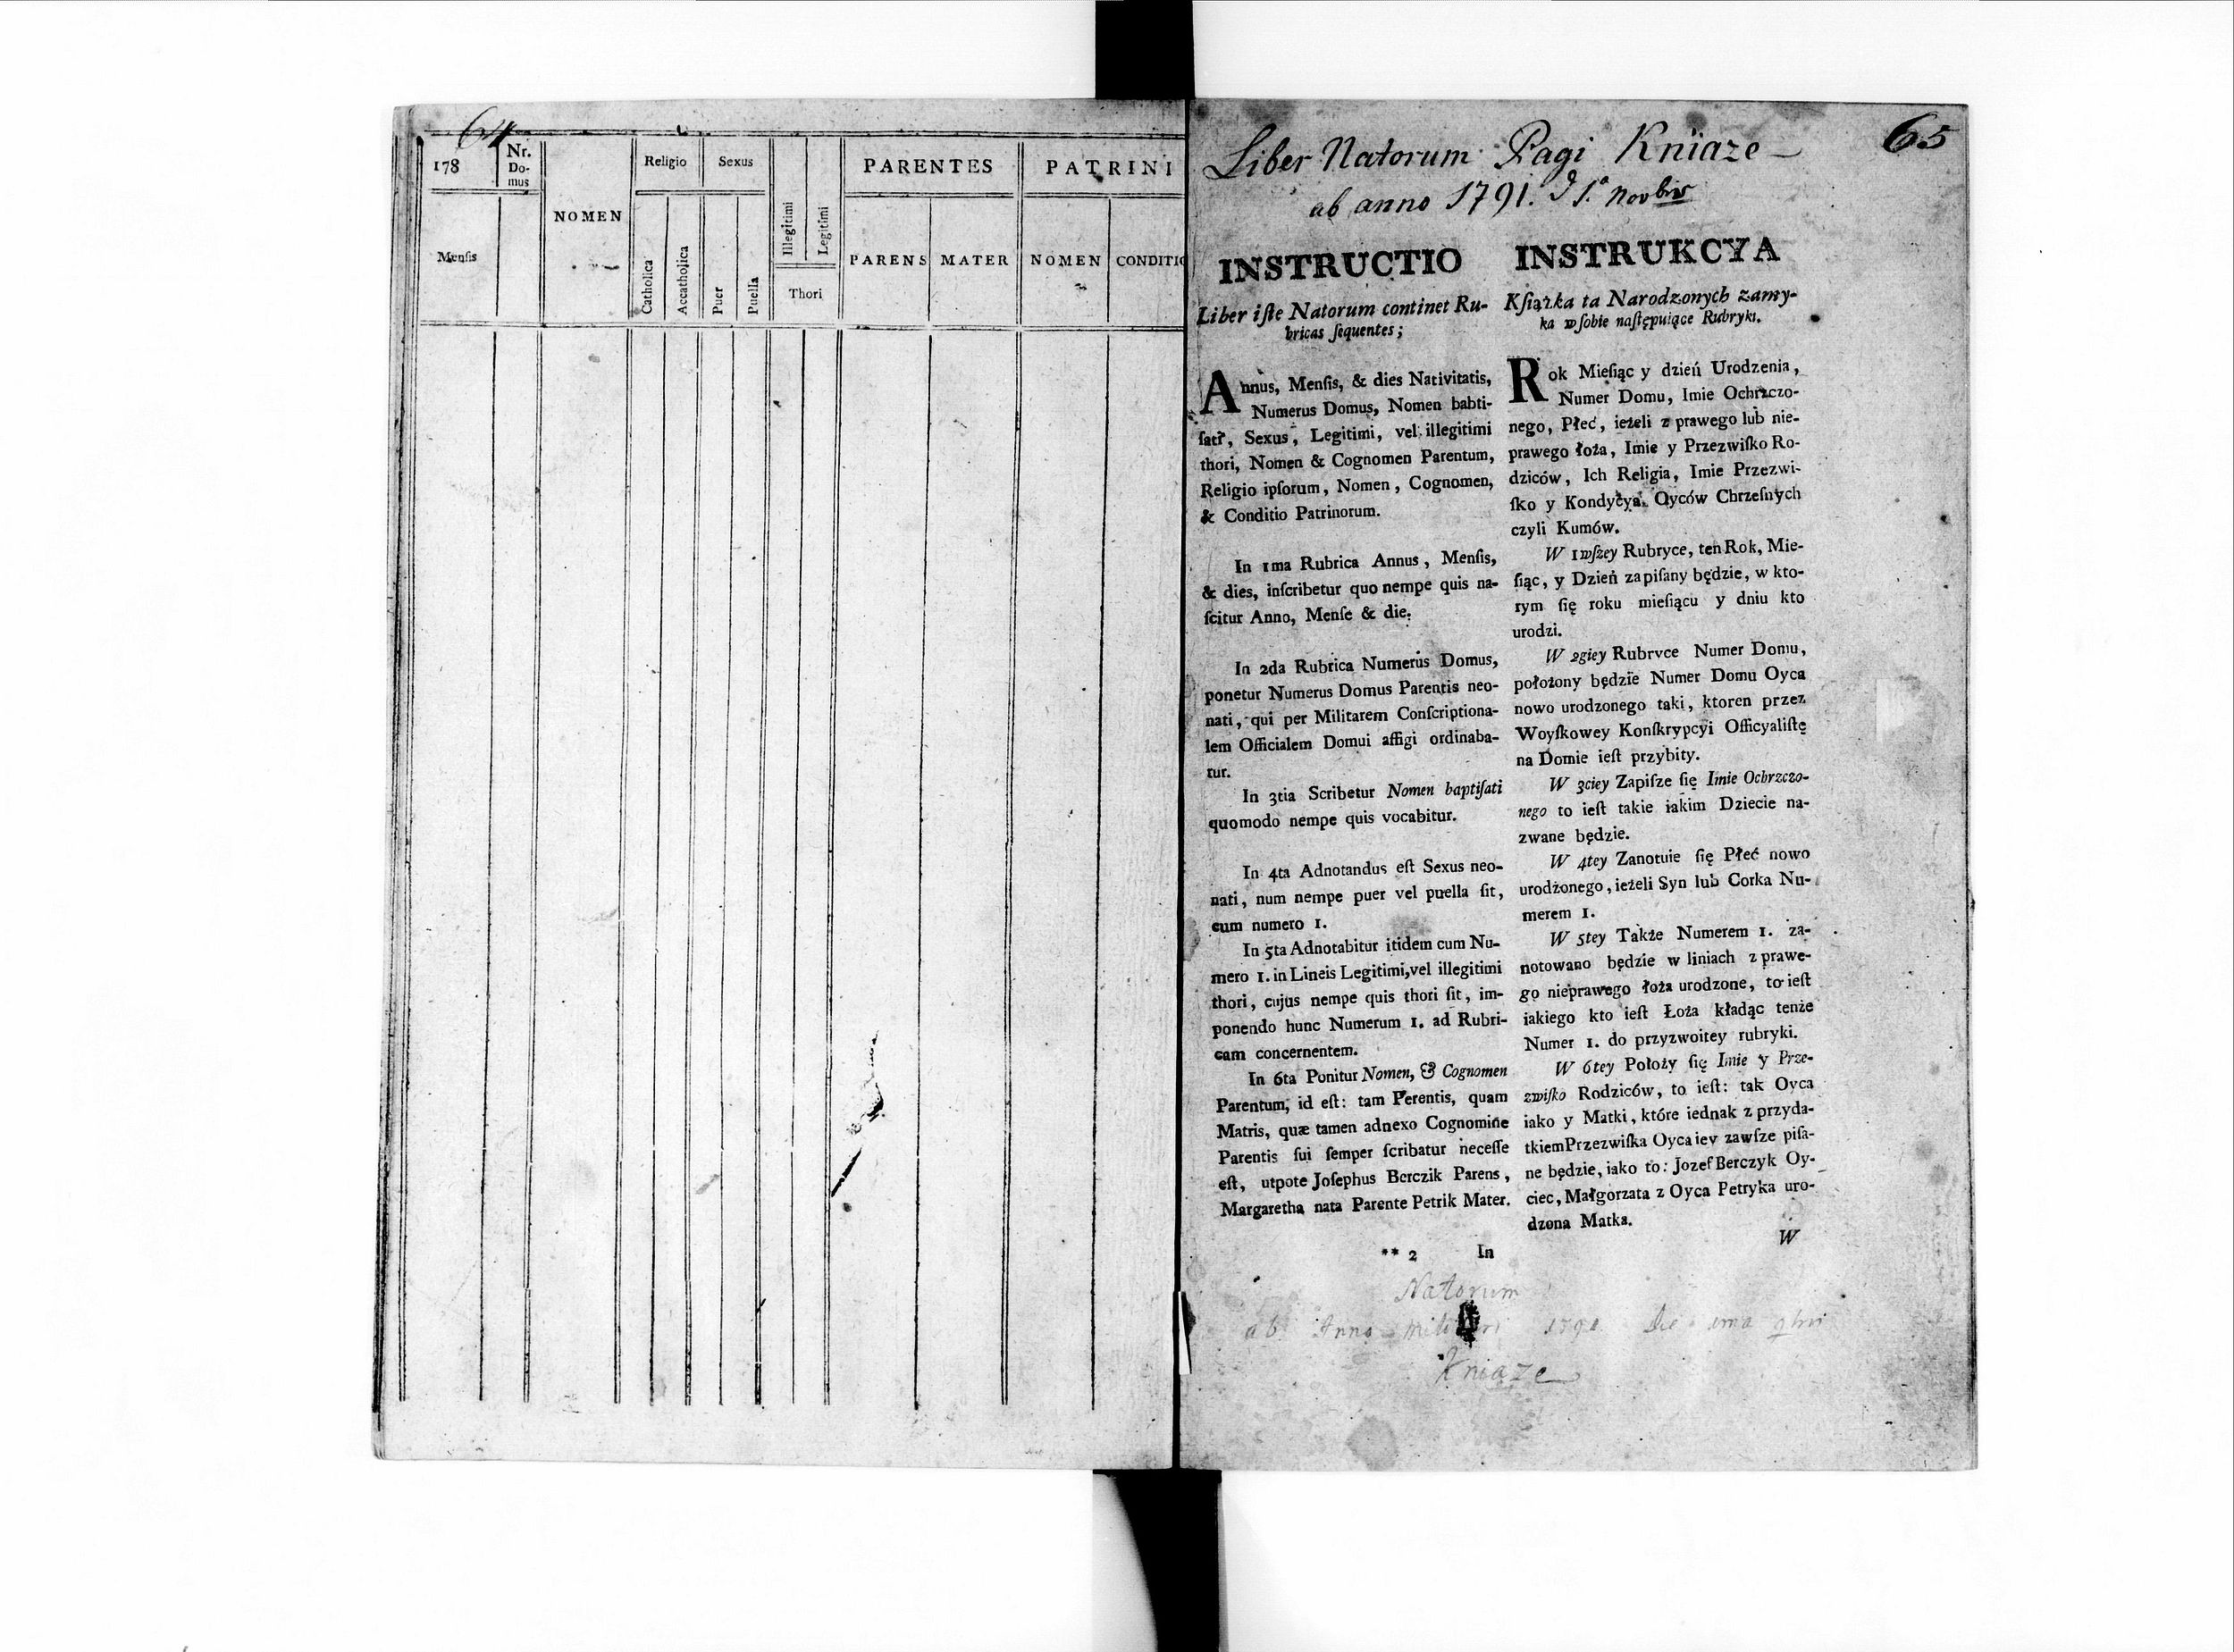 64
178
Nr. Do-
mus
Mensis
NOMEN
Religio
Catholica
Accatholica
Sexus
Puer
Puella
Illegitimi
Legitimi
Thori
PARENTES
PARENS
MATER
PATRINI
NOMEN
CONDITIO
65
Liber Natorum Pagi Kniaze
ab anno 1791. d 1.a Novbris
INSTRUCTIO
Liber iſte Natorum continet Ru-
bricas ſequentes;
Annus, Menſis, & dies Nativitatis,
Numerus Domus, Nomen babti-
ſati, Sexus, Legitimi, vel illegitimi
thori, Nomen & Cognomen Parentum,
Religio ipſorum, Nomen, Cognomen,
& Conditio Patrinorum.
In 1ma Rubrica Annus, Menſis,
& dies, inſcribetur quo nempe quis na-
ſcitur Anno, Menſe & die.
In 2da Rubrica Numerus Domus,
ponetur Numerus Domus Parentis neo-
nati, qui per Militarem Conſcriptiona-
lem Officialem Domui affigi ordinaba-
tur.
In 3tia Scribetur Nomen baptiſati
quomodo nempe quis vocabitur.
In 4ta Adnotandus eſt Sexus neo-
nati, num nempe puer vel puella ſit,
cum numero 1.
In 5ta Adnotabitur itidem cum Nu-
mero 1. in Lineis Legitimi, vel illegitimi
thori, cujus nempe quis thori ſit, im-
ponendo hunc Numerum 1. ad Rubri-
cam concernentem.
In 6ta Ponitur Nomen, & Cognomen
Parentum, id eſt: tam Perentis, quam
Matris, quæ tamen adnexo Cognomine
Parentis ſui ſemper ſcribatur neceſſe
eſt, utpote Joſephus Berczik Parens,
Margaretha nata Parente Petrik Mater.
** 2 In
INSTRUKCYA
Kſiążka ta Narodzonych zamy-
ka w ſobie naſtępuiące Rubryki.
Rok Mieſiąc y dzień Urodzenia,
Numer Domu, Imie Ochrzczo-
nego, Płeć, ieżeli z prawego lub nie-
prawego łoża, Imie y Przezwiſko Ro-
dziców, Ich Religia, Imie Przezwi-
ſko y Kondycya Oyców Chrzeſnych
czyli Kumów.
W 1wſzey Rubryce, ten Rok, Mie-
ſiąc, y Dzień zapiſany będzie, w kto-
rym ſię roku mieſiącu y dniu kto
urodzi.
W 2giey Rubryce Numer Domu,
położony będzie Numer Domu Oyca
nowo urodzonego taki, ktoren przez
Woyſkowey Konſkrypcyi Officyaliſtę
na Domie ieſt przybity.
W 3ciey Zapiſze ſię Imie Ochrzczo-
nego to ieſt takie iakim Dziecie na-
zwane będzie.
W 4tey Zanotuie ſię Płeć nowo
urodzonego, ieżeli Syn lub Corka Nu-
merem 1.
W 5tey Także Numerem 1. za-
notowano będzie w liniach z prawe-
go nieprawego łoża urodzone, to ieſt
iakiego kto ieſt Łoża kładąc tenże
Numer 1. do przyzwoitey rubryki.
W 6tey Położy ſię Imie y Prze-
zwiſko Rodziców, to ieſt: tak Oyca
iako y Matki, które iednak z przyda-
tkiem Przezwiſka Oyca iey zawſze piſa-
ne będzie, iako to: Jozef Berczyk Oy-
ciec, Małgorzata z Oyca Petryka uro-
dzona Matka.
W
Natorum
ab Anno 1791 Die 1ma 9bris
Kniaze